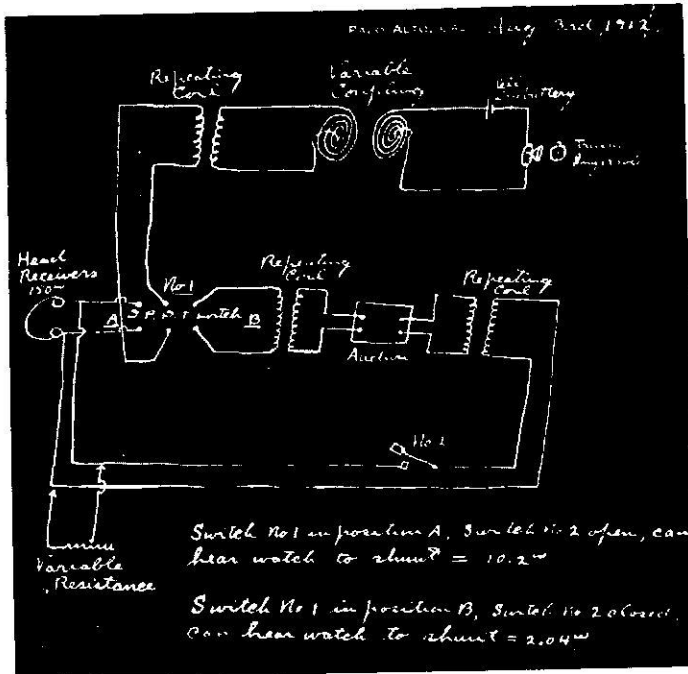 PALO ALTO, CAL. Aug 3rd, 1912.
Repeating
Coil
Variable
Coupling
Battery
Head
Receivers
No 1
S.P.D.T. Switch
A
B
Repeating
Coil
Repeating
Coil
No 2
Variable
Resistance
Switch No 1 in position A, Switch No 2 open, can
hear watch to shunt = 10.2ω
Switch No 1 in position B, Switch No 2 closed,
can hear watch to shunt = 2.04ω